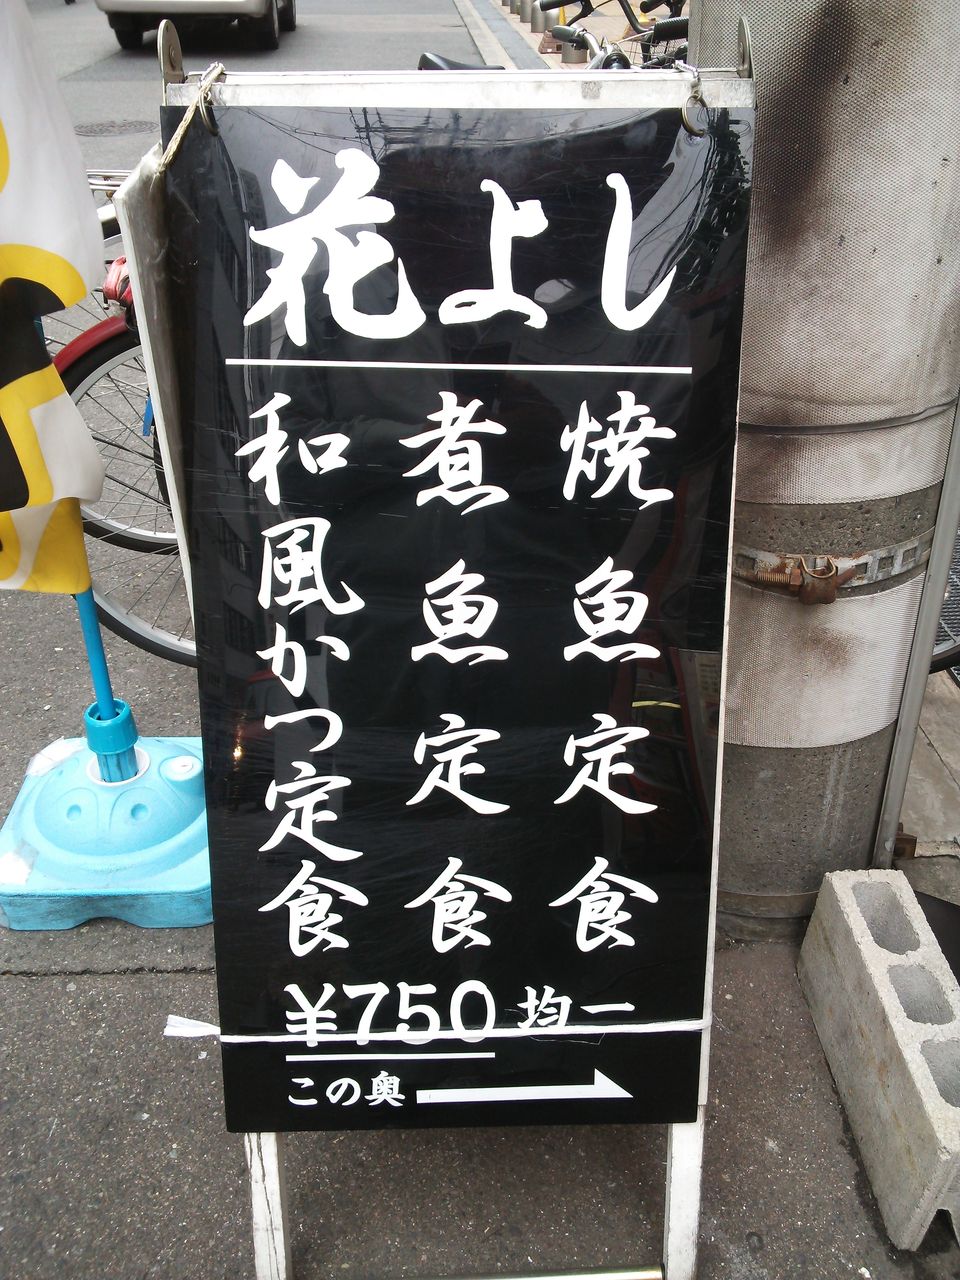 花よし
焼魚定食
煮魚定食
和風かつ定食
¥750均一
この奥